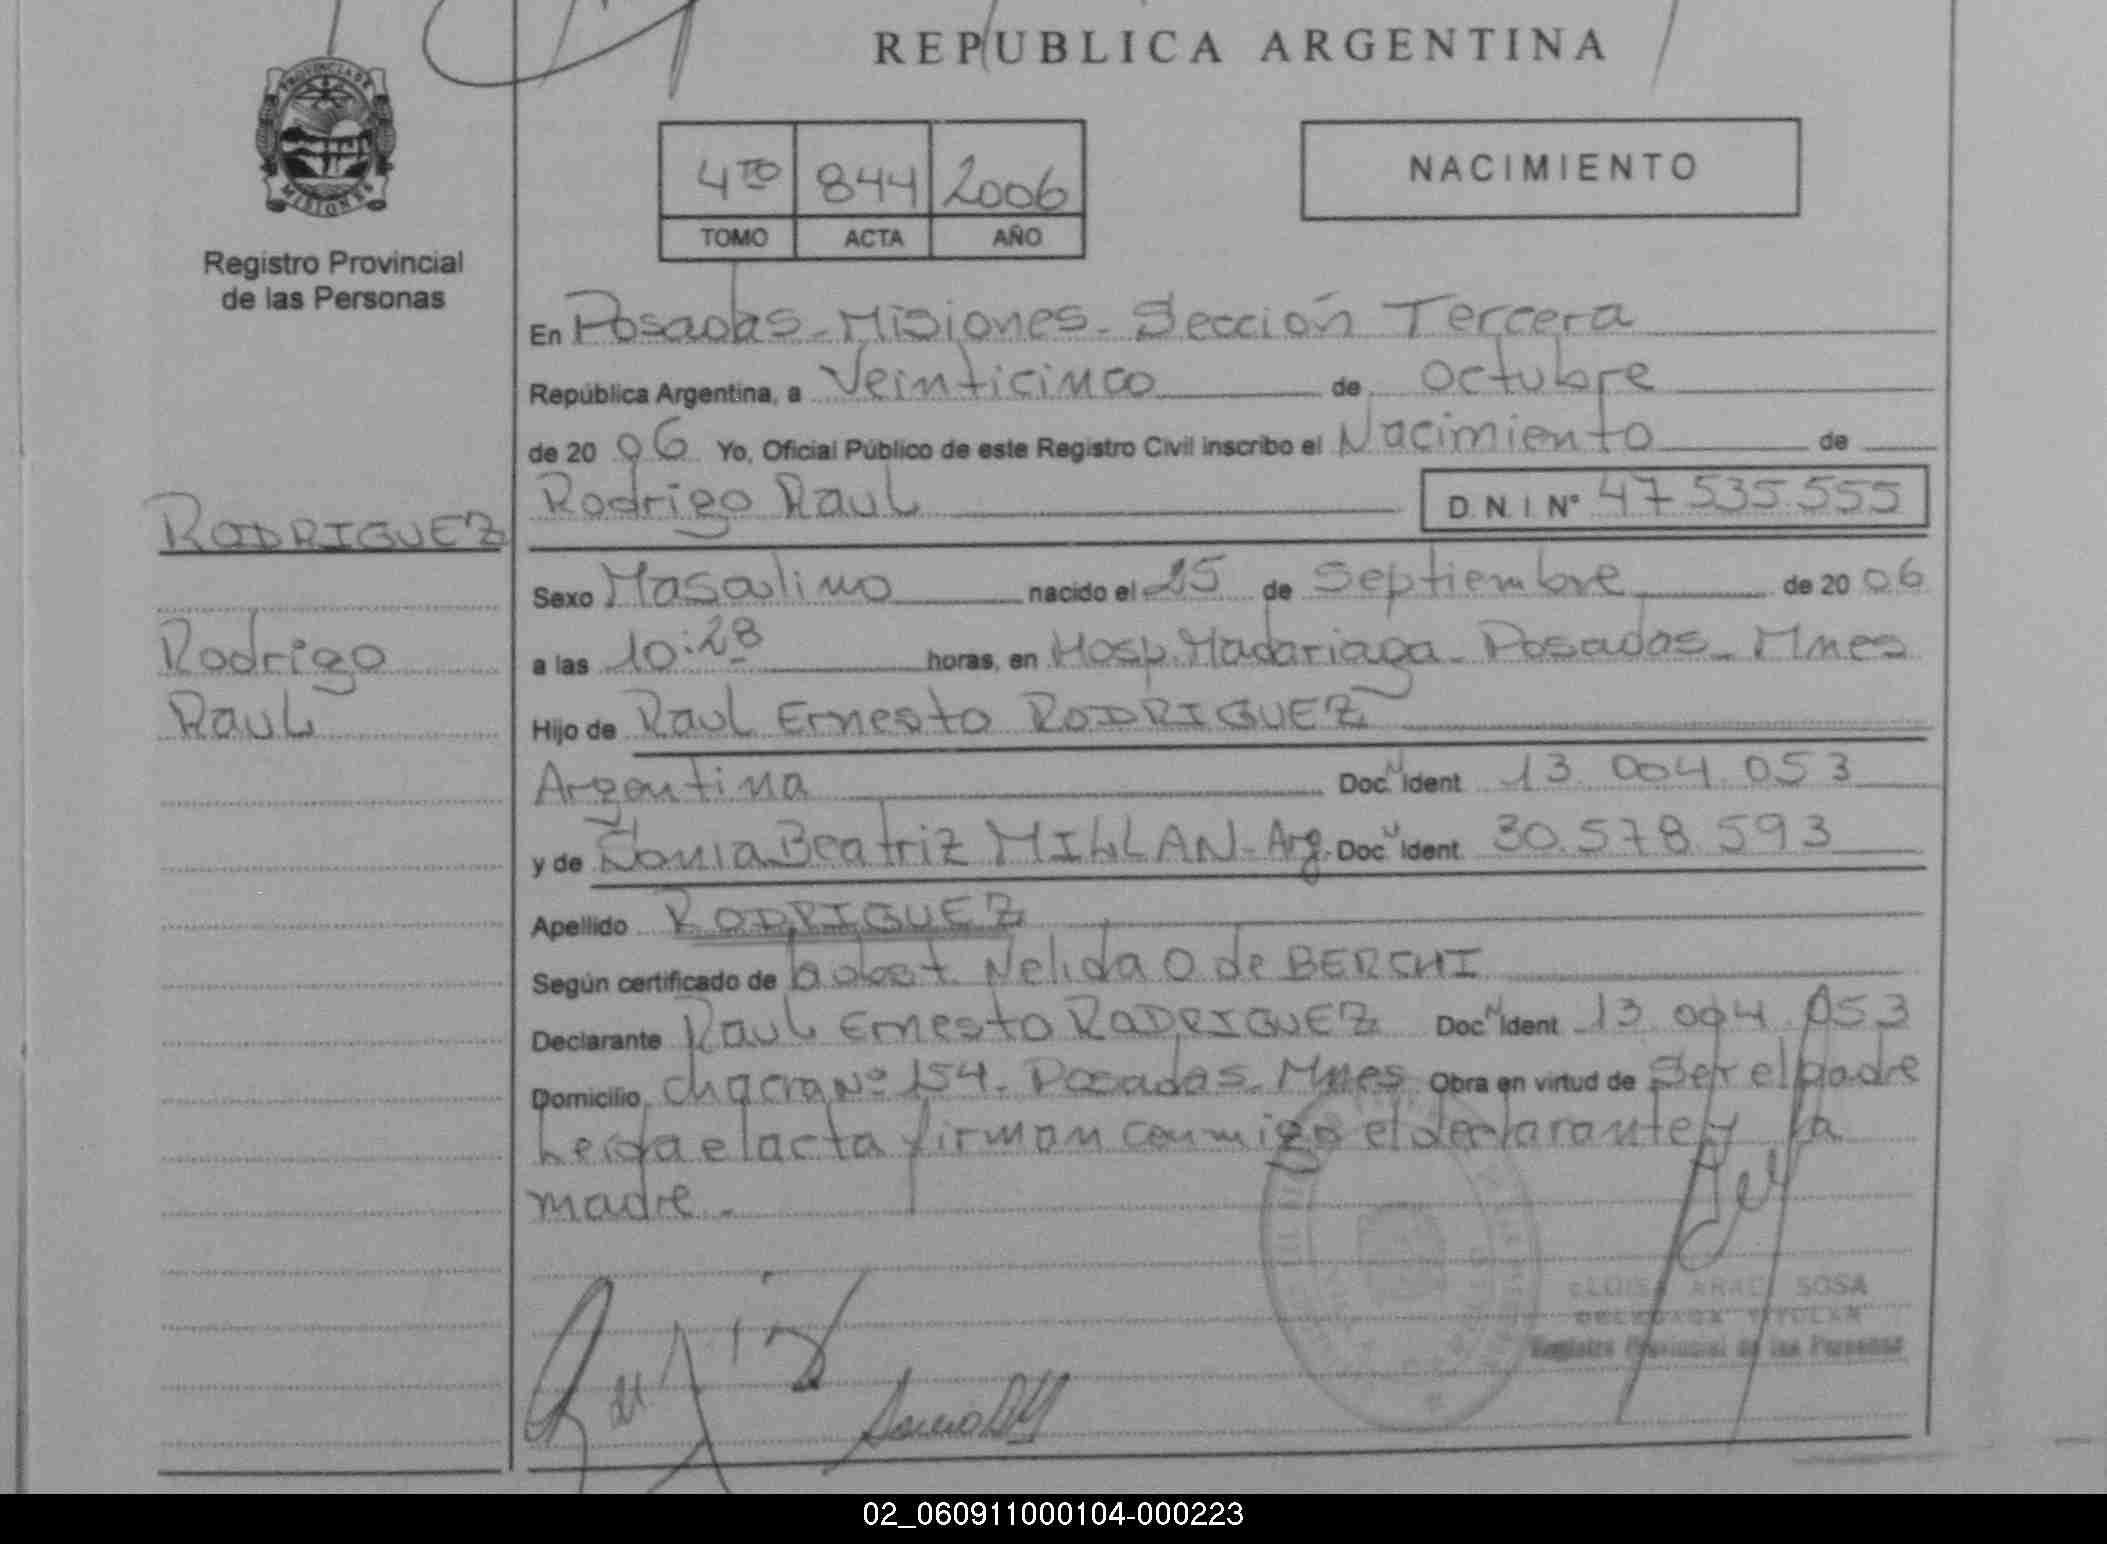 REPUBLICA ARGENTINA
PROVINCIA DE
MISIONES
Registro Provincial
de las Personas
4TO 844 2006
TOMO ACTA AÑO
NACIMIENTO
En Posadas - Misiones - Sección Tercera
República Argentina, a Veinticinco de octubre
de 20 06 Yo, Oficial Público de este Registro Civil inscribo el Nacimiento de
RODRIGUEZ
Rodrigo Raul D.N.I. N° 47 535.555
Sexo Masculino nacido el 25 de Septiembre de 20 06
Rodrigo
a las 10:28 horas, en Hosp. Madariaga - Posadas - Mnes
Raul
Hijo de Raul Ernesto RODRIGUEZ
Argentina Doc. N Ident 13.004.053
y de Sonia Beatriz MILLAN - Arg. Doc. N Ident 30.578.593
Apellido RODRIGUEZ
Según certificado de Nelida O de BERCHI
Declarante Raul Ernesto RODRIGUEZ Doc N Ident 13 004.053
Domicilio chacra Nº 154. Posadas - Mnes Obra en virtud de Ser el padre
Leida el acta firman conmigo el declarante y la
madre.-
SOSA
DELEGADA TITULAR
Registro Provincial de las Personas
02_060911000104-000223